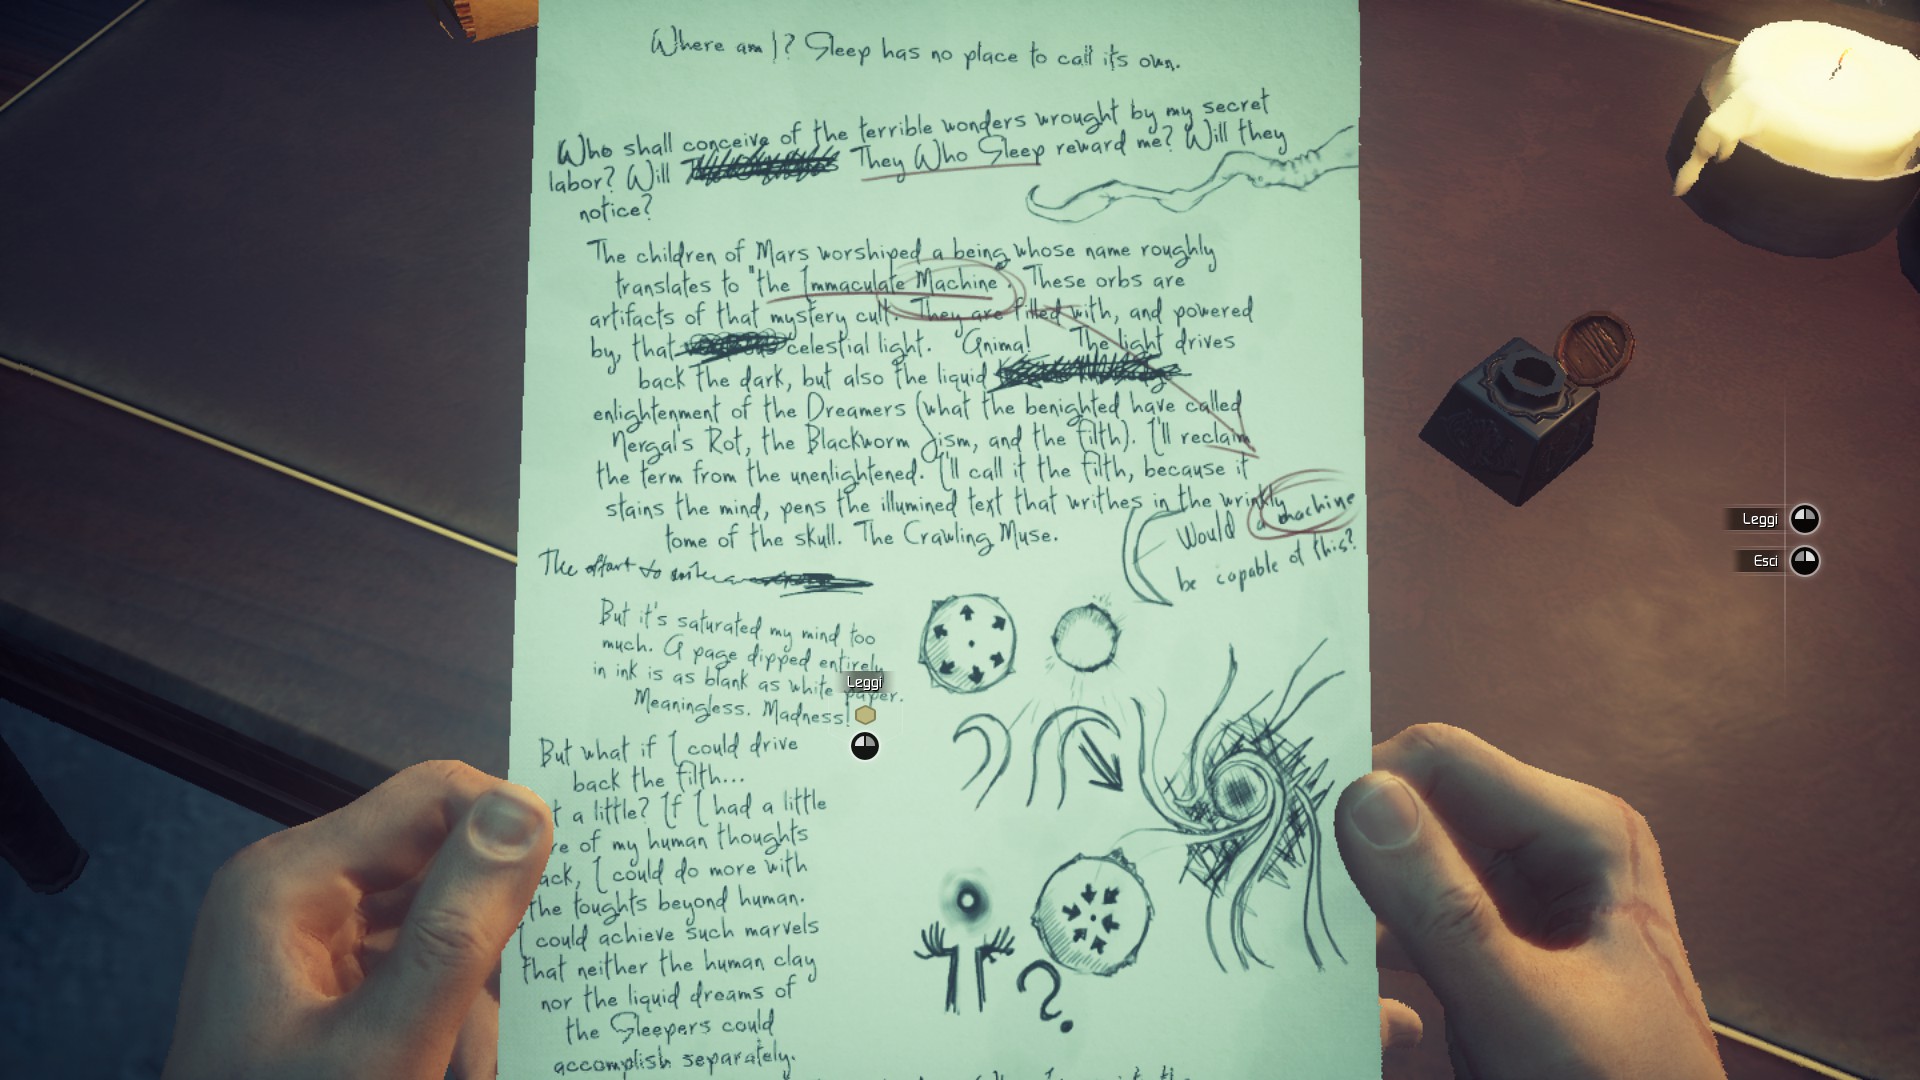 Where am I? Sleep has no place to call its own.
Who shall conceive of the terrible wonders wrought by my secret
labor? Will They Who Sleep reward me? Will they
notice?
The children of Mars worshiped a being whose name roughly
translates to "the Immaculate Machine". These orbs are
artifacts of that mystery cult. They are filled with, and powered
by, that celestial light. Anima! The light drives
back the dark, but also the liquid
enlightenment of the Dreamers (what the benighted have called
Nergal's Rot, the Blackworm Jism, and the filth). I'll reclaim
the term from the unenlightened. I'll call it the filth, because it
stains the mind, pens the illumined text that writhes in the wrinkly
tome of the skull. The Crawling Muse.
Would a machine
be capable of this?
The effort to write
But it's saturated my mind too
much. A page dipped entirely
in ink is as blank as white paper.
Meaningless. Madness!
But what if I could drive
back the filth...
t a little? If I had a little
re of my human thoughts
ack, I could do more with
the toughts beyond human.
I could achieve such marvels
that neither the human clay
nor the liquid dreams of
the Sleepers could
accomplish separately.
?
Leggi
Leggi
Esci